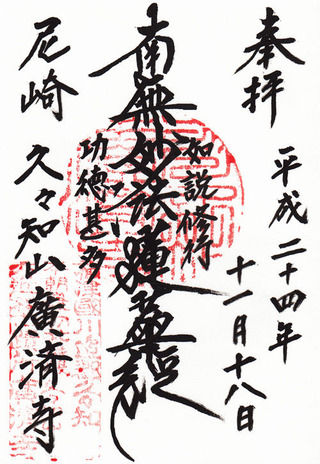 奉拝
平成二十四年
十一月十八日
如説修行
南無妙法蓮華経
功徳甚多
尼崎
久々知山
廣済寺